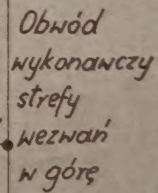 Obwód
wykonawczy
strefy
wezwań
w górę